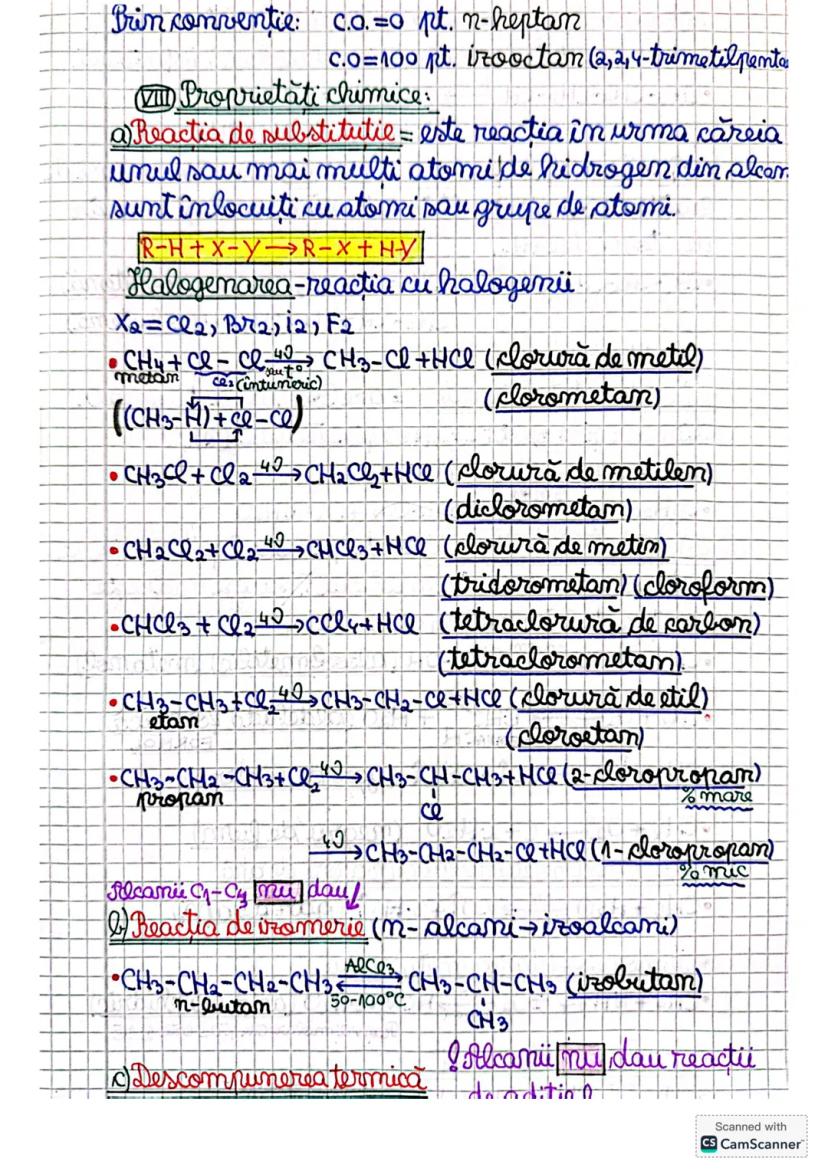 Prin convenție: C.O.=0 pt. n-heptan
C.O=100 pt. izooctan (2,2,4-trimetilpenta
VIII Proprietăți chimice:
a) Reacția de substituție = este reacția în urma căreia
unul sau mai mulți atomi de hidrogen din alcan
sunt înlocuiți cu atomi sau grupe de atomi.
R-H + X-Y → R-X + H-Y
Halogenarea-reacția cu halogenii
X2 = Cl2, Br2, i2, F2
• CH4 + Cl - Cl → CH3-Cl + HCl (clorură de metil)
metan Cl2 (întuneric) sau t°
(clorometan)
((CH3-H) + Cl-Cl)
• CH3Cl + Cl2 → CH2Cl2 + HCl (clorură de metilen)
(diclorometan)
• CH2Cl2 + Cl2 → CHCl3 + HCl (clorură de metin)
(triclorometan) (cloroform)
• CHCl3 + Cl2 → CCl4 + HCl (tetraclorură de carbon)
(tetraclorometan)
• CH3-CH3 + Cl2 → CH3-CH2-Cl + HCl (clorură de etil)
etan
(cloroetan)
• CH3-CH2-CH3 + Cl2 → CH3-CH-CH3 + HCl (2-cloropropan)
propan % mare
Cl
→ CH3-CH2-CH2-Cl + HCl (1-cloropropan)
% mic
Alcanii C1-C3 nu dau ↓
b) Reacția de izomerie (n-alcani → izoalcani)
AlCl3
• CH3-CH2-CH2-CH3 ⇄ CH3-CH-CH3 (izobutan)
n-butan 50-100°C
CH3
! Alcanii nu dau reacții
c) Descompunerea termică
de adiție!
Scanned with
CS CamScanner